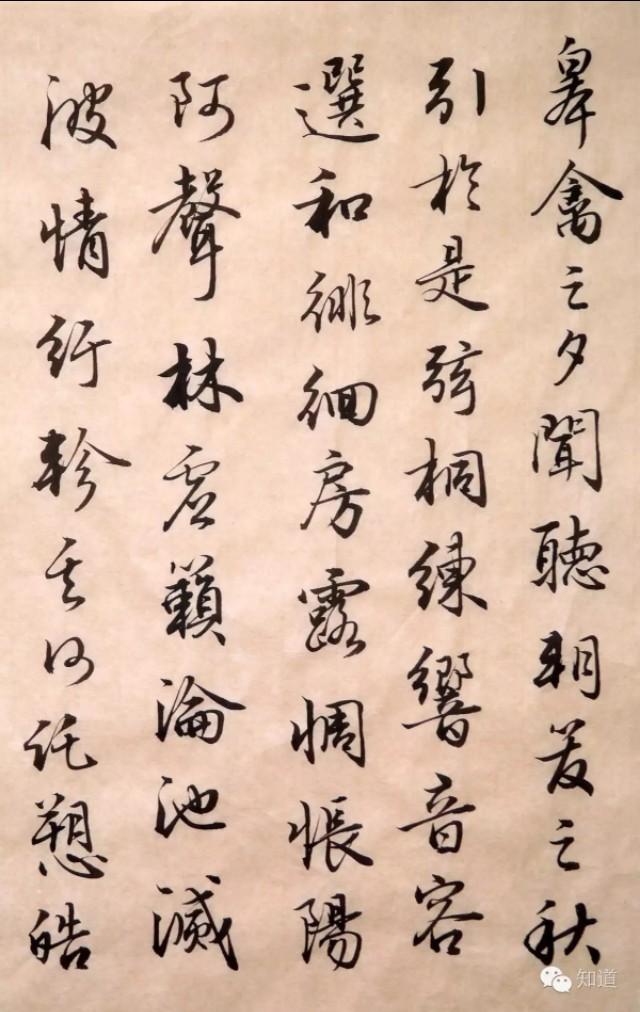 皋禽之夕聞聽朔管之秋
引於是弦桐練響音容
選和徘徊房露惆悵陽
阿聲林虛籟淪池滅
波情紆軫其何託愬皓
知道